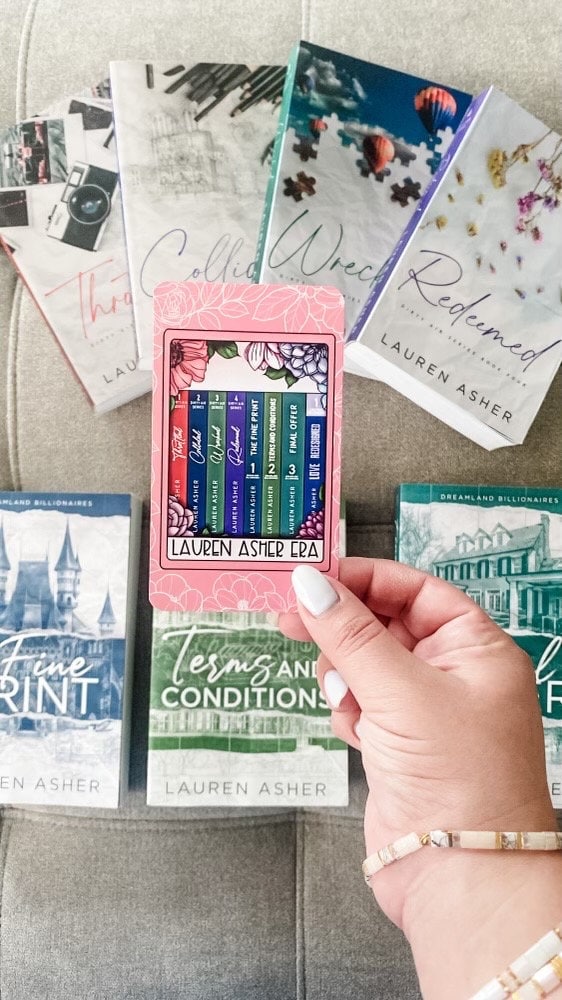 Thro
DIRTY A
LAU
Collid
Wreck
DIRTY AIR SERIES
Redeemed
DIRTY AIR SERIES BOOK FOUR
LAUREN ASHER
Throttled
LAUREN ASHER
2
DIRTY AIR SERIES
Collided
LAUREN ASHER
3
DIRTY AIR SERIES
Wrecked
LAUREN ASHER
4
DIRTY AIR SERIES
Redeemed
LAUREN ASHER
THE FINE PRINT
1
LAUREN ASHER
TERMS AND CONDITIONS
2
LAUREN ASHER
FINAL OFFER
3
LAUREN ASHER
1
LOVE REDESIGNED
LAUREN ASHER ERA
DREAMLAND BILLIONAIRES
Fine
RINT
EN ASHER
Terms AND
CONDITIONS
LAUREN ASHER
DREAMLAND BILLIONAIRES
l
R